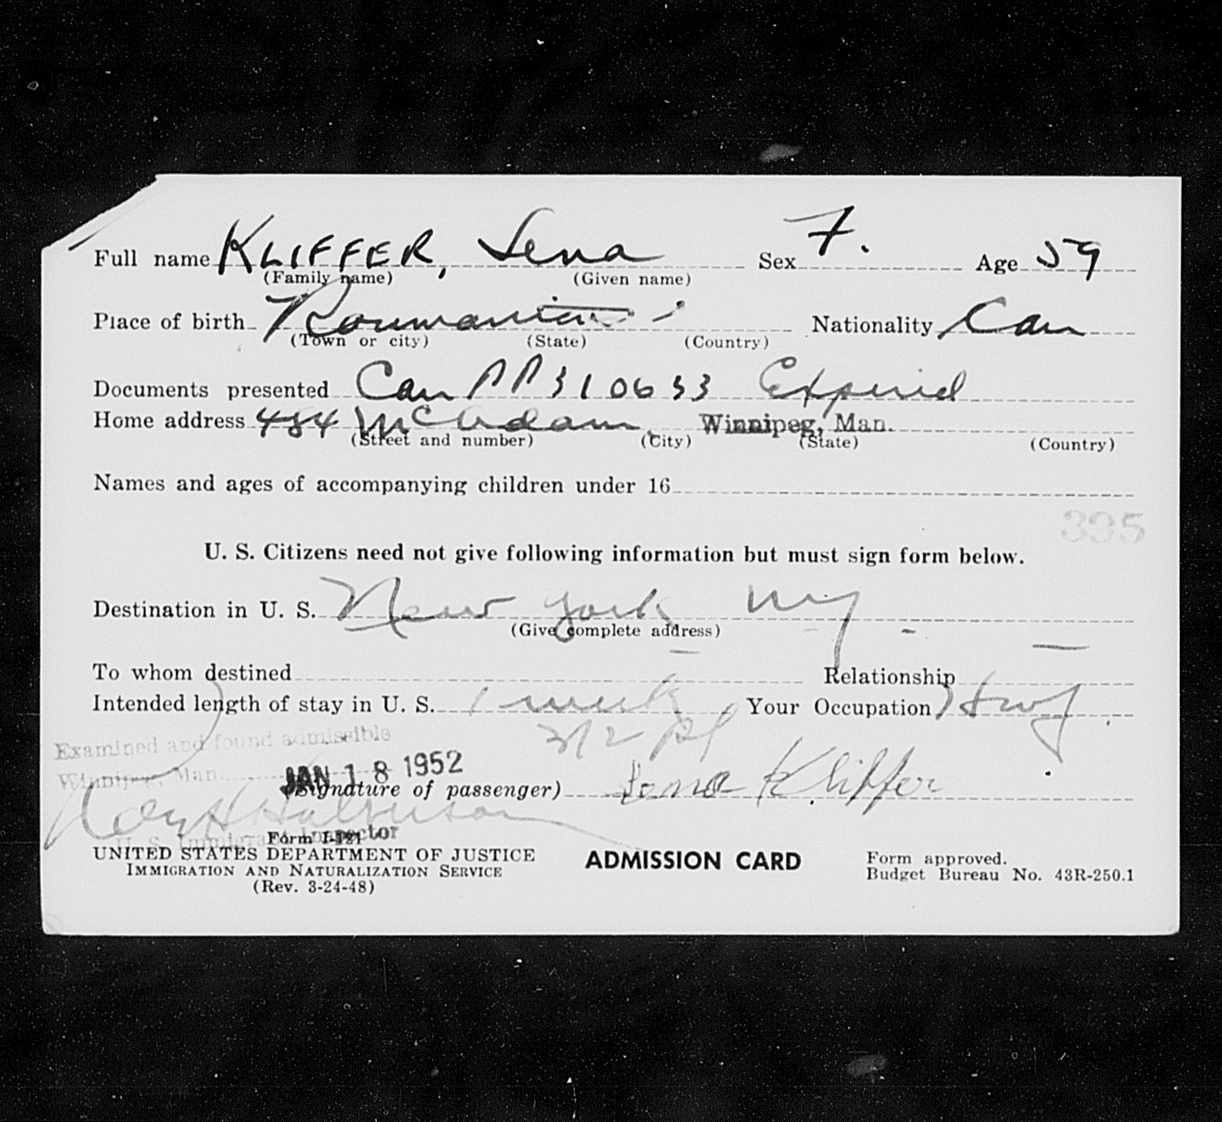 Full name KLIFFER, Lena Sex F. Age 59
(Family name) (Given name)
Place of birth Roumania Nationality Can
(Town or city) (State) (Country)
Documents presented Can PP 310633 Expired
Home address 484 McAdam, Winnipeg, Man.
(Street and number) (City) (State) (Country)
Names and ages of accompanying children under 16
395
U. S. Citizens need not give following information but must sign form below.
Destination in U. S. New York NY
(Give complete address)
To whom destined Relationship
Intended length of stay in U. S. 1 week Your Occupation Hwf.
Examined and found admissible
Winnipeg, Man. JAN 18 1952
(Signature of passenger) Lena Kliffer
U. S. Immigrant Inspector
Form I-
UNITED STATES DEPARTMENT OF JUSTICE ADMISSION CARD Form approved.
IMMIGRATION AND NATURALIZATION SERVICE Budget Bureau No. 43R-250.1
(Rev. 3-24-48)